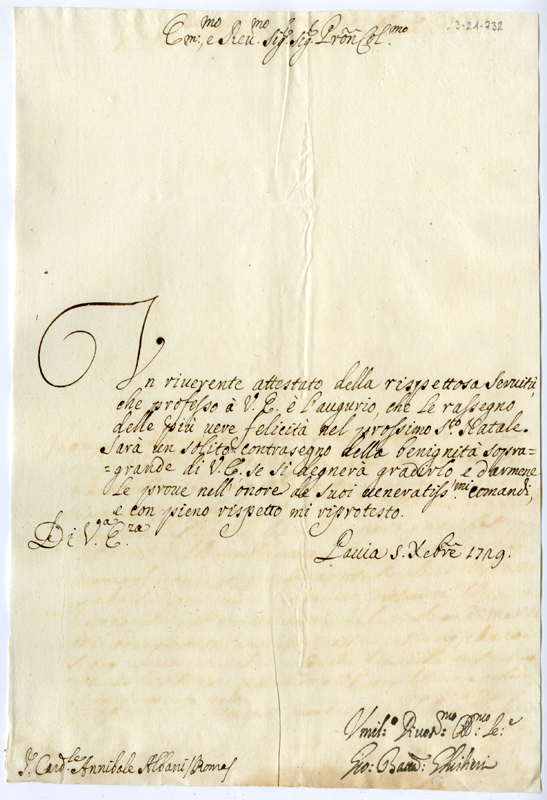 3-21-732
Em.mo e Reu.mo Sig.r Sig.r Prõn Col.mo
Vn riuerente attestato della rispettosa seruitù,
che professo à V. E. è l'augurio, che le rassegno
delle più uere felicità nel prossimo S.to Natale.
Sarà un solito contrasegno della benignità sopra=
=grande di V. E. se si degnerà gradirlo e d'armene
le proue nell'onore de suoi ueneratiss.mi comandi,
e con pieno rispetto mi riprotesto.
Di V.ra E.za
Pauia 5. Xbrẽ 1729.
Vmil.o Diuot.mo Obb.mo Se.e
Gio: Batt: Ghislieri
S. Card.le Annibale Albani / Roma /